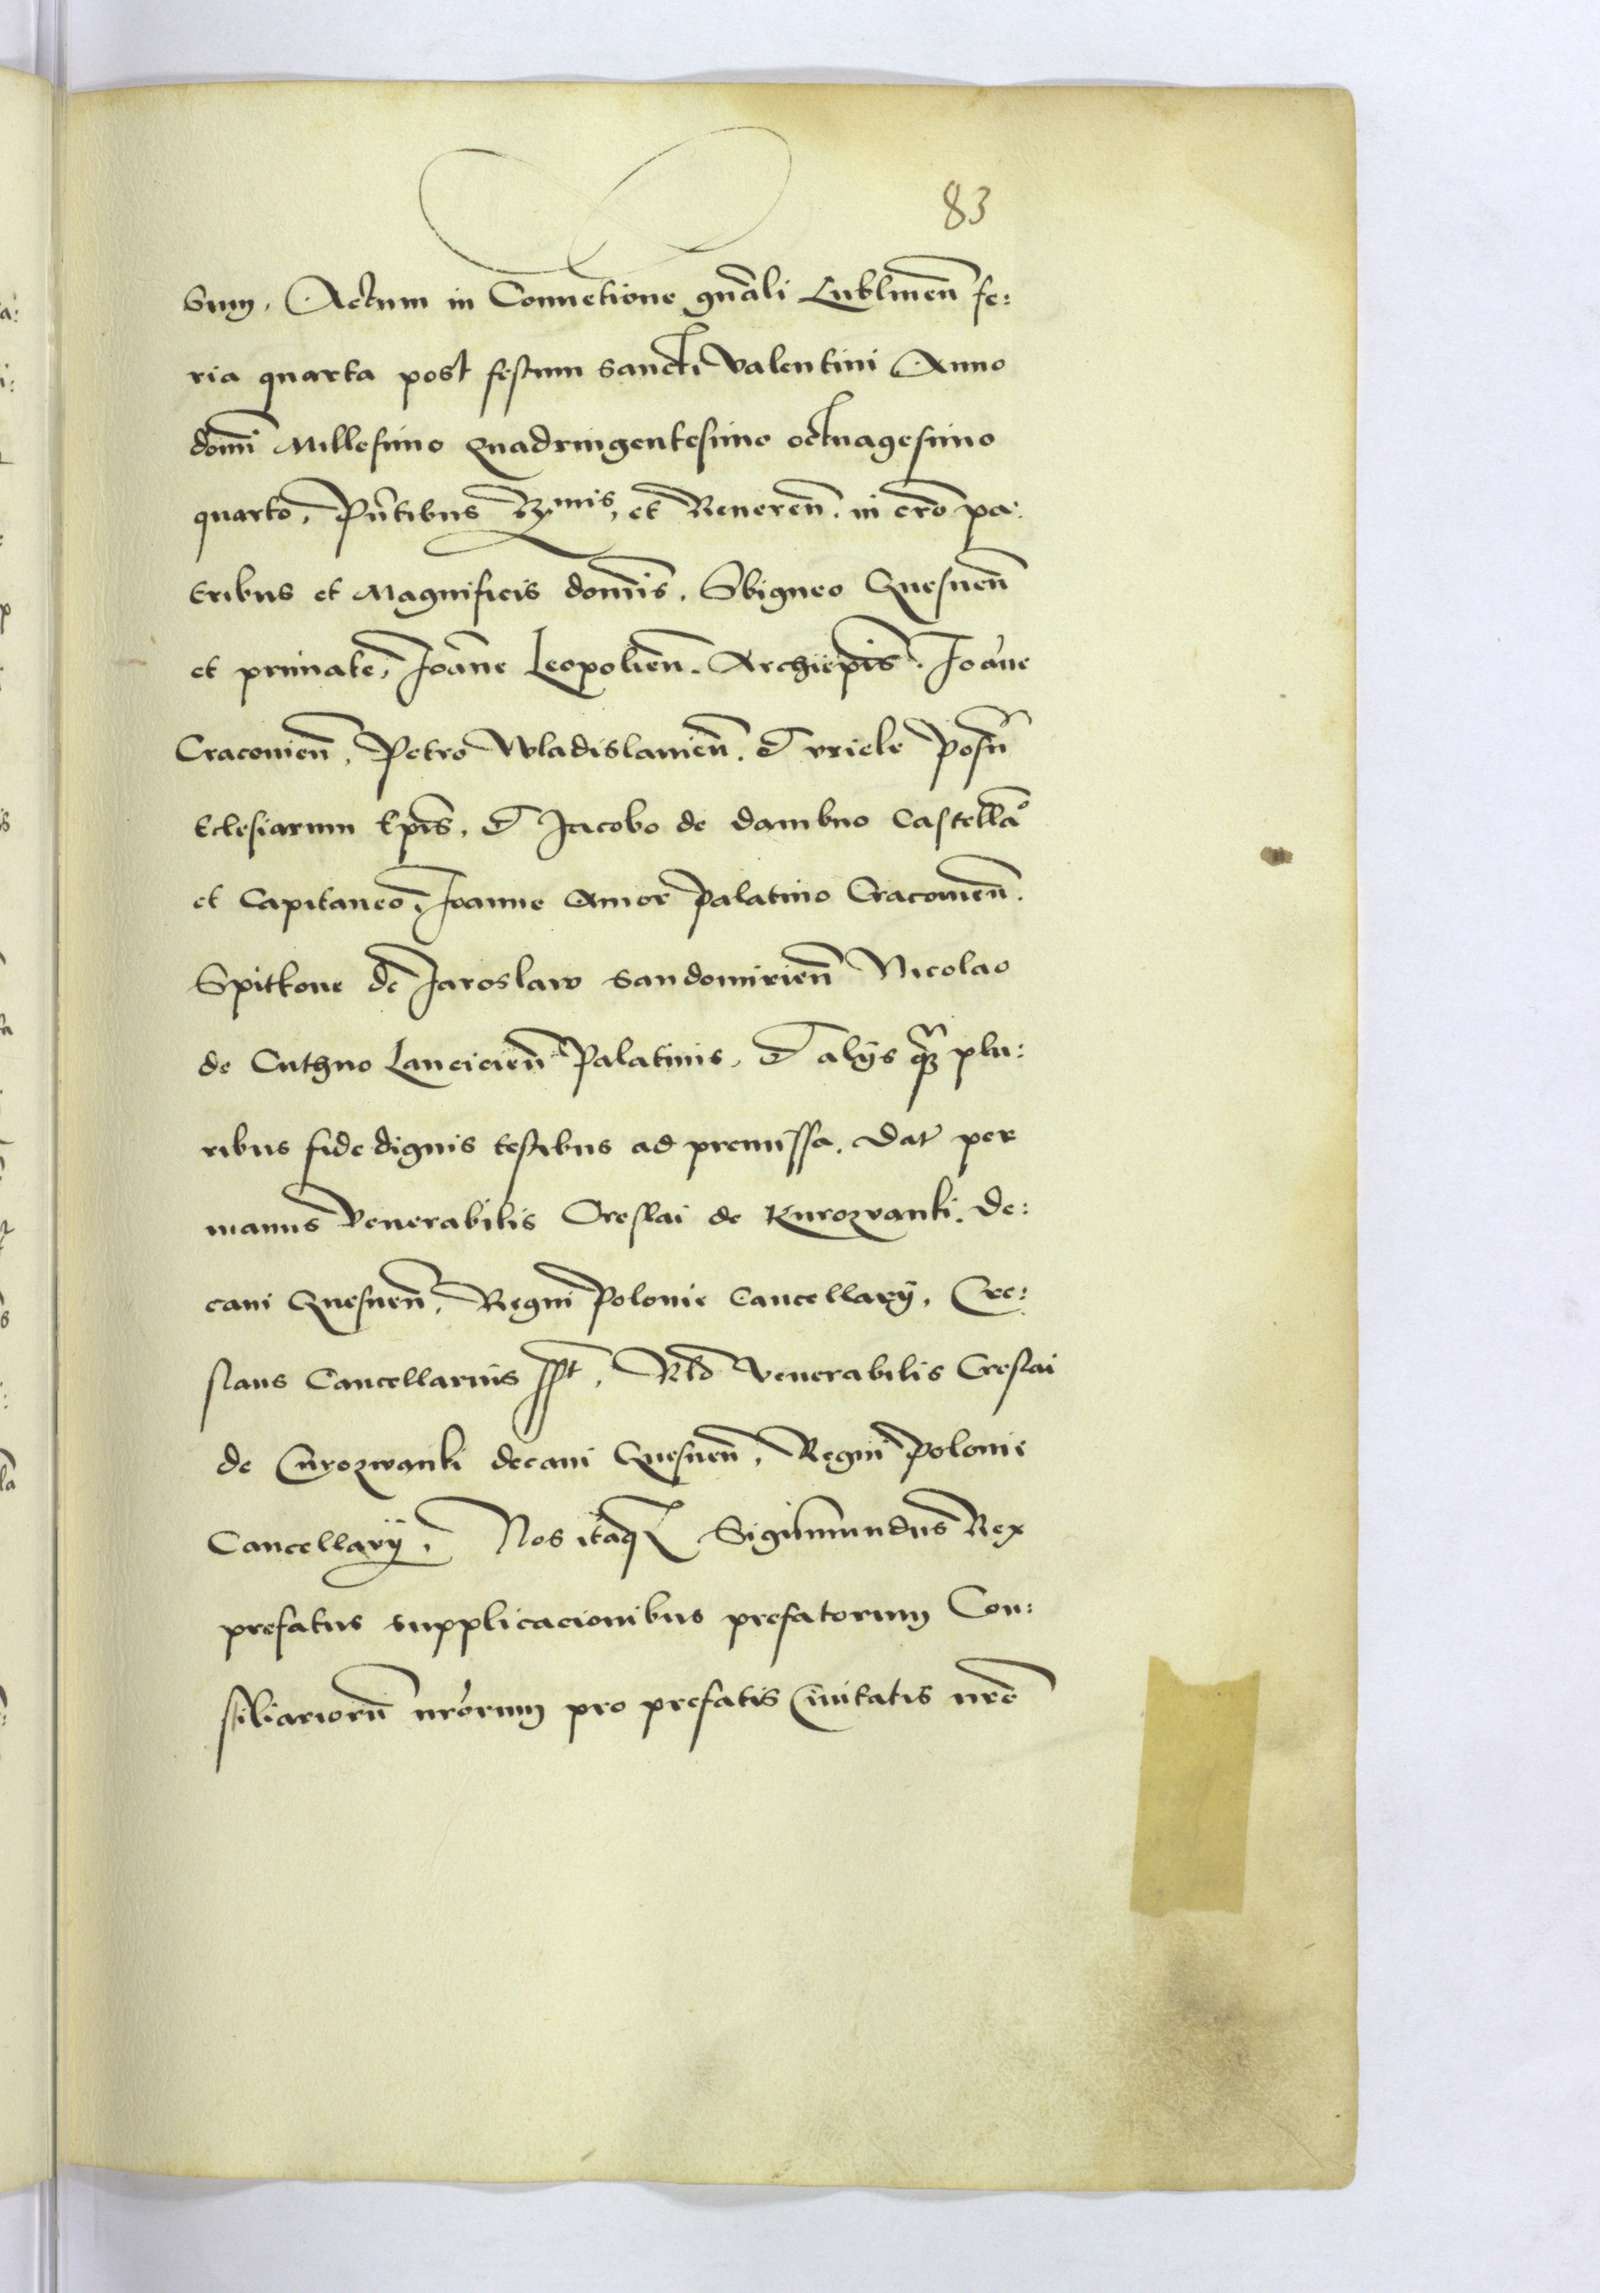 83
sum. Actum in Conuetione gnāli Lublineñ fe:
ria quarta post festum sancti Valentini Anno
domī Millesimo Quadringentesimo octuagesimo
quarto, Pñtibus Rmis, et Reueren. in cro pa:
tribus et Magnificis domīs. Sbigneo Gnesneñ
et primate, Joāne Leopolien. Archiepīs. Joāne
Cracouieñ, Petro Wladislauieñ. et vriele Posñ
Eclesiarum Epīs. et Jacobo de dambno Castellāo
et Capitaneo, Joanne Amor Palatino Cracouieñ.
Spitkone de Jaroslaw sandomirieñ Nicolao
de Cuthno Lancicieñ Palatinis. et alÿs qȝ plu:
ribus fide dignis testibus ad premissa. Dat per
manus Venerabilis Creslai de Kurozvanki. De:
cani Gnesneñ. Regni Polonie Cancellarÿ. Cre:
slaus Cancellarius sspt, Rlo venerabilis Creslai
de Curozwanki decani Gnesneñ, Regni Polonie
Cancellarÿ. Nos itaqȝ Sigismundus Rex
prefatus supplicacionibus prefatorum Con:
siliariorū nr̄orum pro prefatis Ciuitatis nr̄e